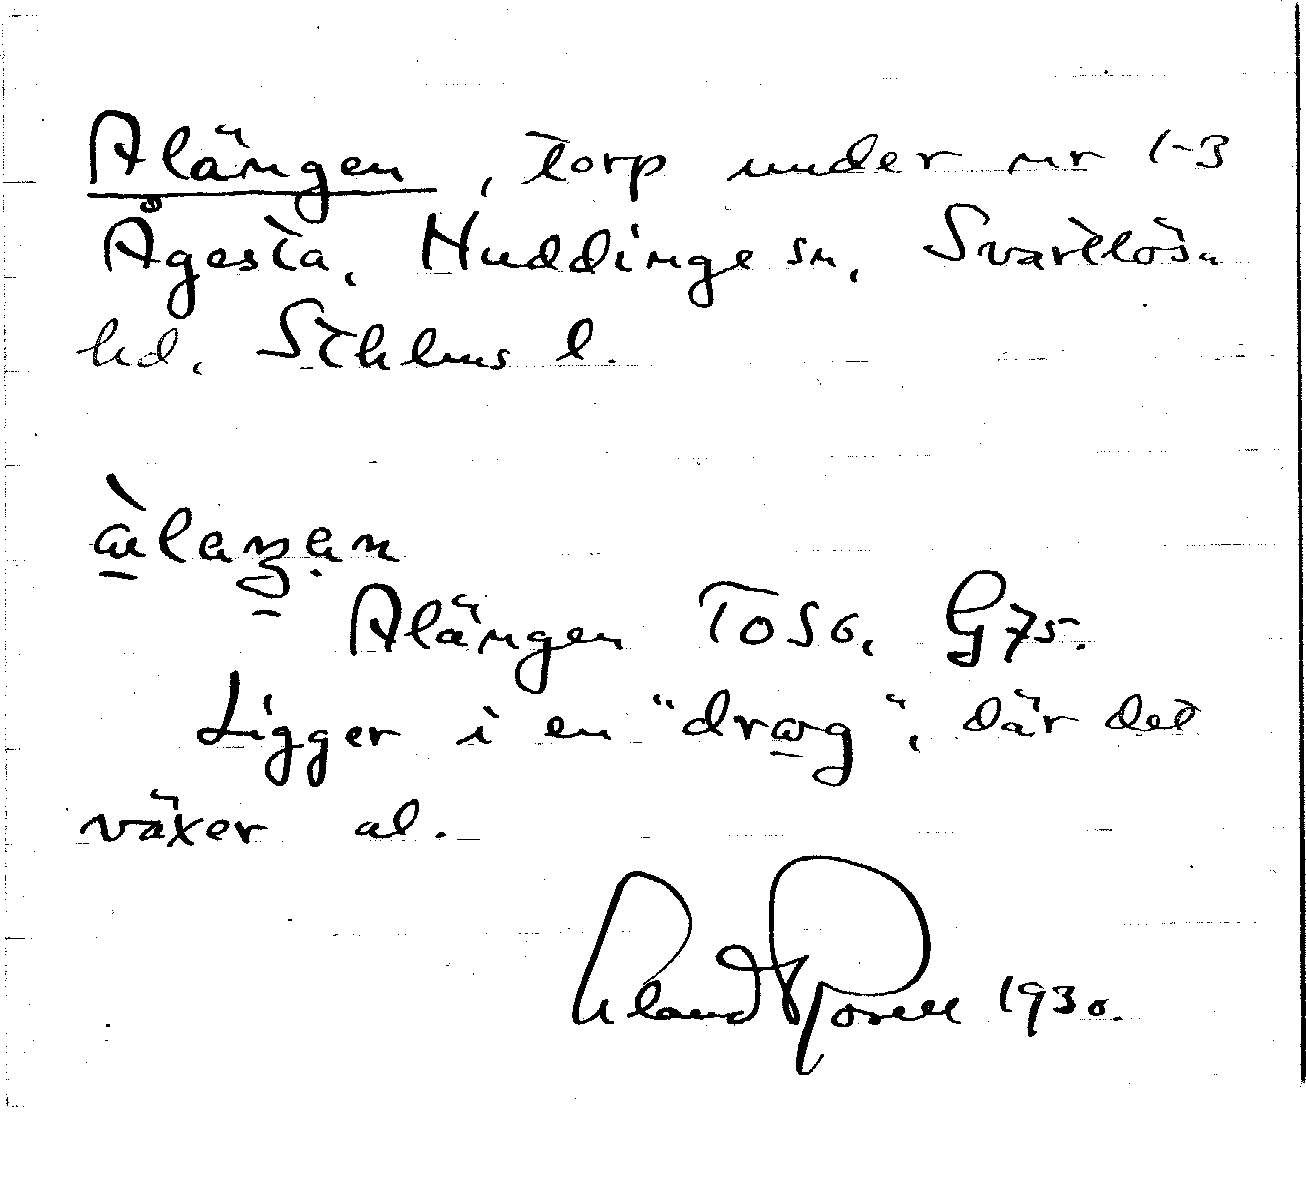 Alängen, torp under nr 1-3
Ågesta, Huddinge sn, Svartlösa
hd, Sthlms l.
Alängen To56, G75.
Ligger i en "drag", där det
växer al.
1930.